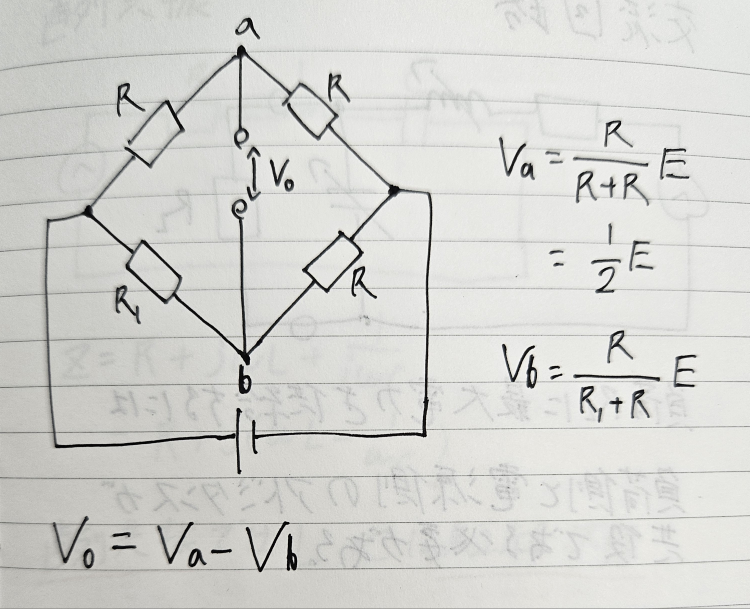 a
R
R
V₀
R₁
R
b
Va = R/(R+R) E
= 1/2 E
Vb = R/(R₁+R) E
V₀ = Va - Vb